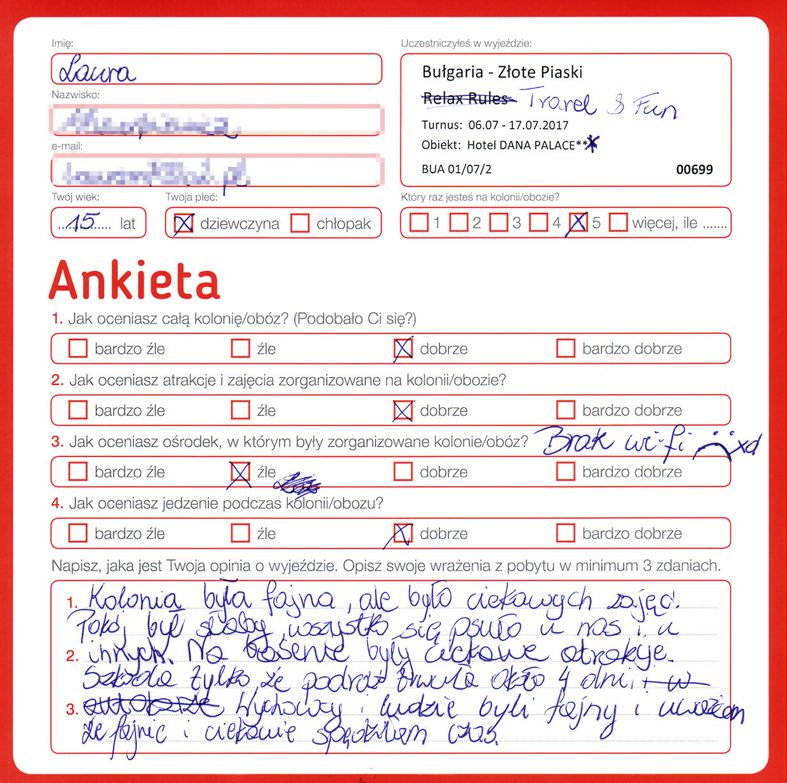 Imię:
Uczestniczyłeś w wyjeździe:
Laura
Bułgaria - Złote Piaski
Nazwisko:
Relax Rules Travel & Fun
Turnus: 06.07 - 17.07.2017
e-mail:
Obiekt: Hotel DANA PALACE***
BUA 01/07/2 00699
Twój wiek: Twoja płeć: Który raz jesteś na kolonii/obozie?
15 lat dziewczyna chłopak 1 2 3 4 5 więcej, ile .......
Ankieta
1. Jak oceniasz całą kolonię/obóz? (Podobało Ci się?)
bardzo źle źle dobrze bardzo dobrze
2. Jak oceniasz atrakcje i zajęcia zorganizowane na kolonii/obozie?
bardzo źle źle dobrze bardzo dobrze
3. Jak oceniasz ośrodek, w którym były zorganizowane kolonie/obóz? Brak wi-fi xd
bardzo źle źle dobrze bardzo dobrze
4. Jak oceniasz jedzenie podczas kolonii/obozu?
bardzo źle źle dobrze bardzo dobrze
Napisz, jaka jest Twoja opinia o wyjeździe. Opisz swoje wrażenia z pobytu w minimum 3 zdaniach.
1. Kolonia była fajna, ale było ciekawych zajęć.
Pokój był słaby, wszystko się psuło u nas i u
2. innych. Na basenie były ciekawe atrakcje.
Szkoda tylko, że podróż trwała około 4 dni. i w
3. autobusie Wychowawcy i ludzie byli fajny i uważam
że fajnie i ciekawie spędziłam czas.